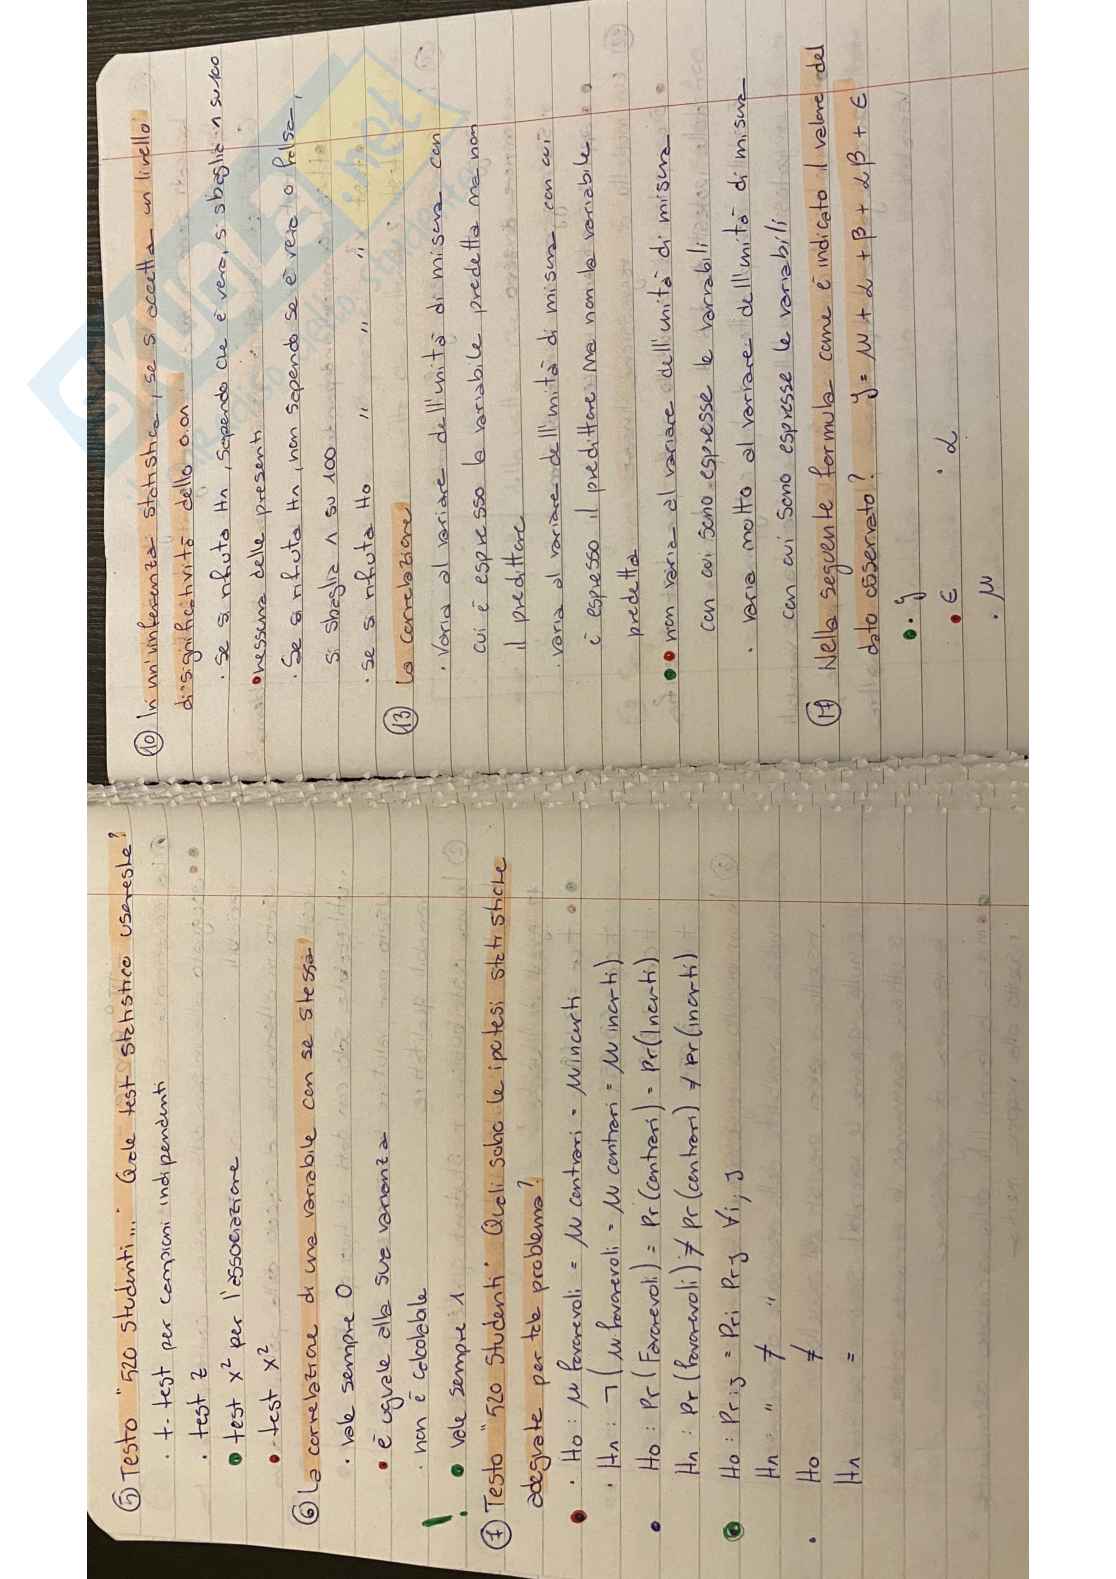 ⑤ Testo "520 studenti..." Quale test statistico usereste?
· t-test per campioni indipendenti
· test z
· test x² per l'associazione
· test x²
⑥ La correlazione di una variabile con se stessa
· vale sempre 0
· è uguale alla sua varianza
· non è calcolabile
! · vale sempre 1
⑦ Testo "520 studenti" Quali sono le ipotesi statistiche
adeguate per tale problema?
· H0: μ favorevoli = μ contrari = μ incerti
· H1: ¬(μ favorevoli = μ contrari = μ incerti)
H0: Pr(Favorevoli) = Pr(contrari) = Pr(Incerti)
H1: Pr(favorevoli) ≠ Pr(contrari) ≠ Pr(incerti)
H0: Prij = Pri Prj ∀i,j
H1 = " ≠ "
· H0 ≠
H1 =
⑩ In un'inferenza statistica, se si accetta un livello
di significatività dello 0.01
· Se si rifiuta H1, sapendo che è vera, si sbaglia 1 su 100
· nessuna delle presenti
· Se si rifiuta H1, non sapendo se è vera o falsa,
si sbaglia 1 su 100
· se si rifiuta H0 " " "
⑬ La correlazione
· Varia al variare dell'unità di misura con
cui è espressa la variabile predetta ma non
il predittore
· varia al variare dell'unità di misura con cui
è espresso il predittore ma non la variabile
predetta
· non varia al variare dell'unità di misura
con cui sono espresse le variabili
· varia molto al variare dell'unità di misura
con cui sono espresse le variabili
⑰ Nella seguente formula come è indicato il valore del
dato osservato? y = μ + α + β + αβ + ε
· y
· ε · α
· μ
SKUOLA.net